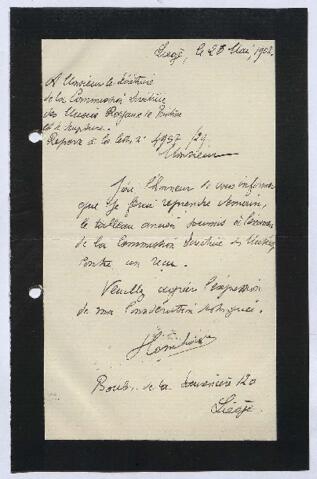 Liége, le 26 Mai, 1908.
A Monsieur le Secrétaire
de la Commission Directrice
des Musées Royaux de Peinture
et de Sculpture.
Réponse à la lettre n° 4957
Monsieur
J'ai l'honneur de vous informer
que je ferai reprendre demain,
le tableau ancien soumis à l'examen
de la Commission Directrice des Musées
contre un reçu.
Veuillez agréer l'expression
de ma considération distinguée.
Boul. de la Sauvenière 120
Liége.